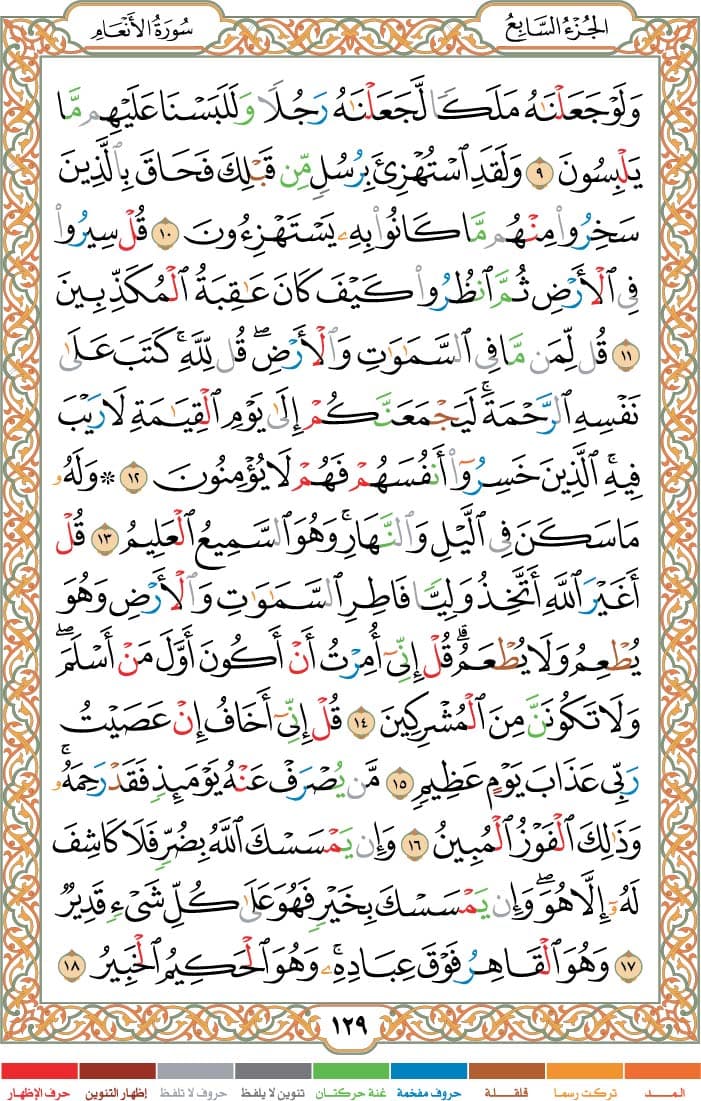 الجُزْءُ السَّابِعُ
سُورَةُ الأَنْعَامِ
وَلَوْ جَعَلْنَٰهُ مَلَكًا لَّجَعَلْنَٰهُ رَجُلًا وَلَلَبَسْنَا عَلَيْهِم مَّا
يَلْبِسُونَ ٩ وَلَقَدِ ٱسْتُهْزِئَ بِرُسُلٍ مِّن قَبْلِكَ فَحَاقَ بِٱلَّذِينَ
سَخِرُوا۟ مِنْهُم مَّا كَانُوا۟ بِهِۦ يَسْتَهْزِءُونَ ١٠ قُلْ سِيرُوا۟
فِى ٱلْأَرْضِ ثُمَّ ٱنظُرُوا۟ كَيْفَ كَانَ عَٰقِبَةُ ٱلْمُكَذِّبِينَ
١١ قُل لِّمَن مَّا فِى ٱلسَّمَٰوَٰتِ وَٱلْأَرْضِ ۖ قُل لِّلَّهِ ۚ كَتَبَ عَلَىٰ
نَفْسِهِ ٱلرَّحْمَةَ ۚ لَيَجْمَعَنَّكُمْ إِلَىٰ يَوْمِ ٱلْقِيَٰمَةِ لَا رَيْبَ
فِيهِ ۚ ٱلَّذِينَ خَسِرُوٓا۟ أَنفُسَهُمْ فَهُمْ لَا يُؤْمِنُونَ ١٢ ۞ وَلَهُۥ
مَا سَكَنَ فِى ٱلَّيْلِ وَٱلنَّهَارِ ۚ وَهُوَ ٱلسَّمِيعُ ٱلْعَلِيمُ ١٣ قُلْ
أَغَيْرَ ٱللَّهِ أَتَّخِذُ وَلِيًّا فَاطِرِ ٱلسَّمَٰوَٰتِ وَٱلْأَرْضِ وَهُوَ
يُطْعِمُ وَلَا يُطْعَمُ ۗ قُلْ إِنِّىٓ أُمِرْتُ أَنْ أَكُونَ أَوَّلَ مَنْ أَسْلَمَ ۖ
وَلَا تَكُونَنَّ مِنَ ٱلْمُشْرِكِينَ ١٤ قُلْ إِنِّىٓ أَخَافُ إِنْ عَصَيْتُ
رَبِّى عَذَابَ يَوْمٍ عَظِيمٍ ١٥ مَّن يُصْرَفْ عَنْهُ يَوْمَئِذٍ فَقَدْ رَحِمَهُۥ ۚ
وَذَٰلِكَ ٱلْفَوْزُ ٱلْمُبِينُ ١٦ وَإِن يَمْسَسْكَ ٱللَّهُ بِضُرٍّ فَلَا كَاشِفَ
لَهُۥٓ إِلَّا هُوَ ۖ وَإِن يَمْسَسْكَ بِخَيْرٍ فَهُوَ عَلَىٰ كُلِّ شَىْءٍ قَدِيرٌ
١٧ وَهُوَ ٱلْقَاهِرُ فَوْقَ عِبَادِهِۦ ۚ وَهُوَ ٱلْحَكِيمُ ٱلْخَبِيرُ ١٨
١٢٩
المـــد تركت رسما قلقـــلة حروف مفخمة غنة حركتان تنوين لا يلفظ حروف لا تلفظ إظهار التنوين حرف الإظهار